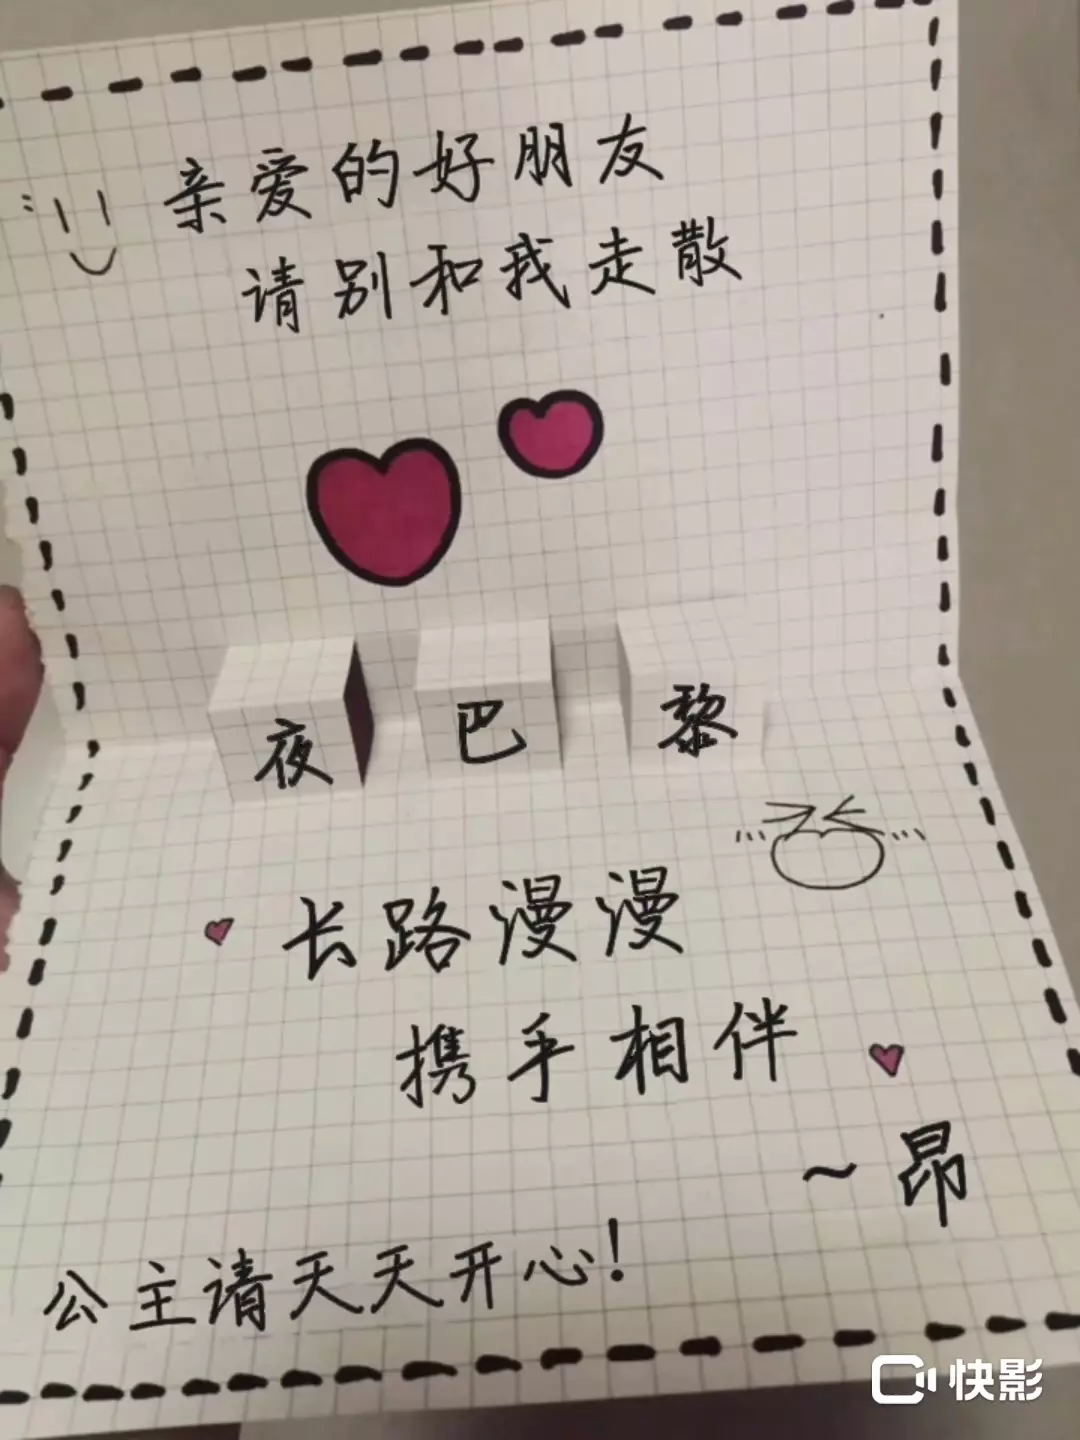 亲爱的好朋友
请别和我走散
夜 巴 黎
长路漫漫
携手相伴
~昂
公主请天天开心!
快影